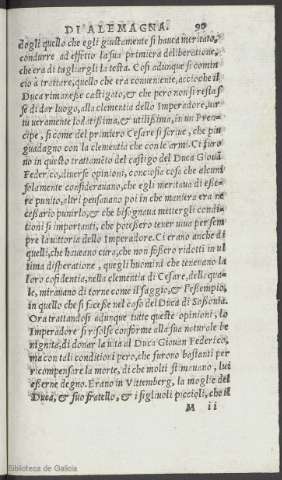 DI ALEMAGNA. 90
dogli quello che egli giustamente si hauea meritato,
condurre ad effetto la sua primiera deliberatione,
che era di tagliargli la testa. Cosi adunque si comin
ciò a trattare, quello che era conueniente, accioche il
Duca rimanesse castigato, & che pero non si restas
se di dar luogo, alla clementia dello Imperadore, uir
tu ueramente lodatissima, & utilissima, in un Pren
cipe, si come del primiero Cesare si scriue, che piu
guadagno con la clementia che con le armi. Ci furo
no in questo trattamẽto del castigo del Duca Giouã
Federico, diuerse opinioni, conciosia cosa che alcuni
solamente considerauano, che egli meritaua di esse
re punito, altri pensauano poi in che maniera era ne
cessario punirlo, & che bisognaua mettergli condi
tioni si importanti, che potessero tener uiua per sem
pre la uittoria dello Imperadore. Ci erano anche di
quelli, che haueano cura, che non fussero ridotti in ul
tima disperatione, quegli huomini che teneuano la
loro cõfidentia, nella clementia di Cesare, delli qua
le, mirauano di torne come il saggio, & l'essempio,
in quello che si facesse nel caso del Duca di Sassonia.
Ora trattandosi adunque tutte queste opinioni, lo
Imperadore si risolse conforme alla sua naturale be
nignità, di donar la uita al Duca Giouan Federico,
ma con tali conditioni pero, che furono bastanti per
ricompensare la morte, di che molti stimauano, lui
esserne degno. Erano in Vittemberg, la moglie del
Duca, & suo fratello, & i figliuoli piccioli, che il
M ii
Biblioteca de Galicia